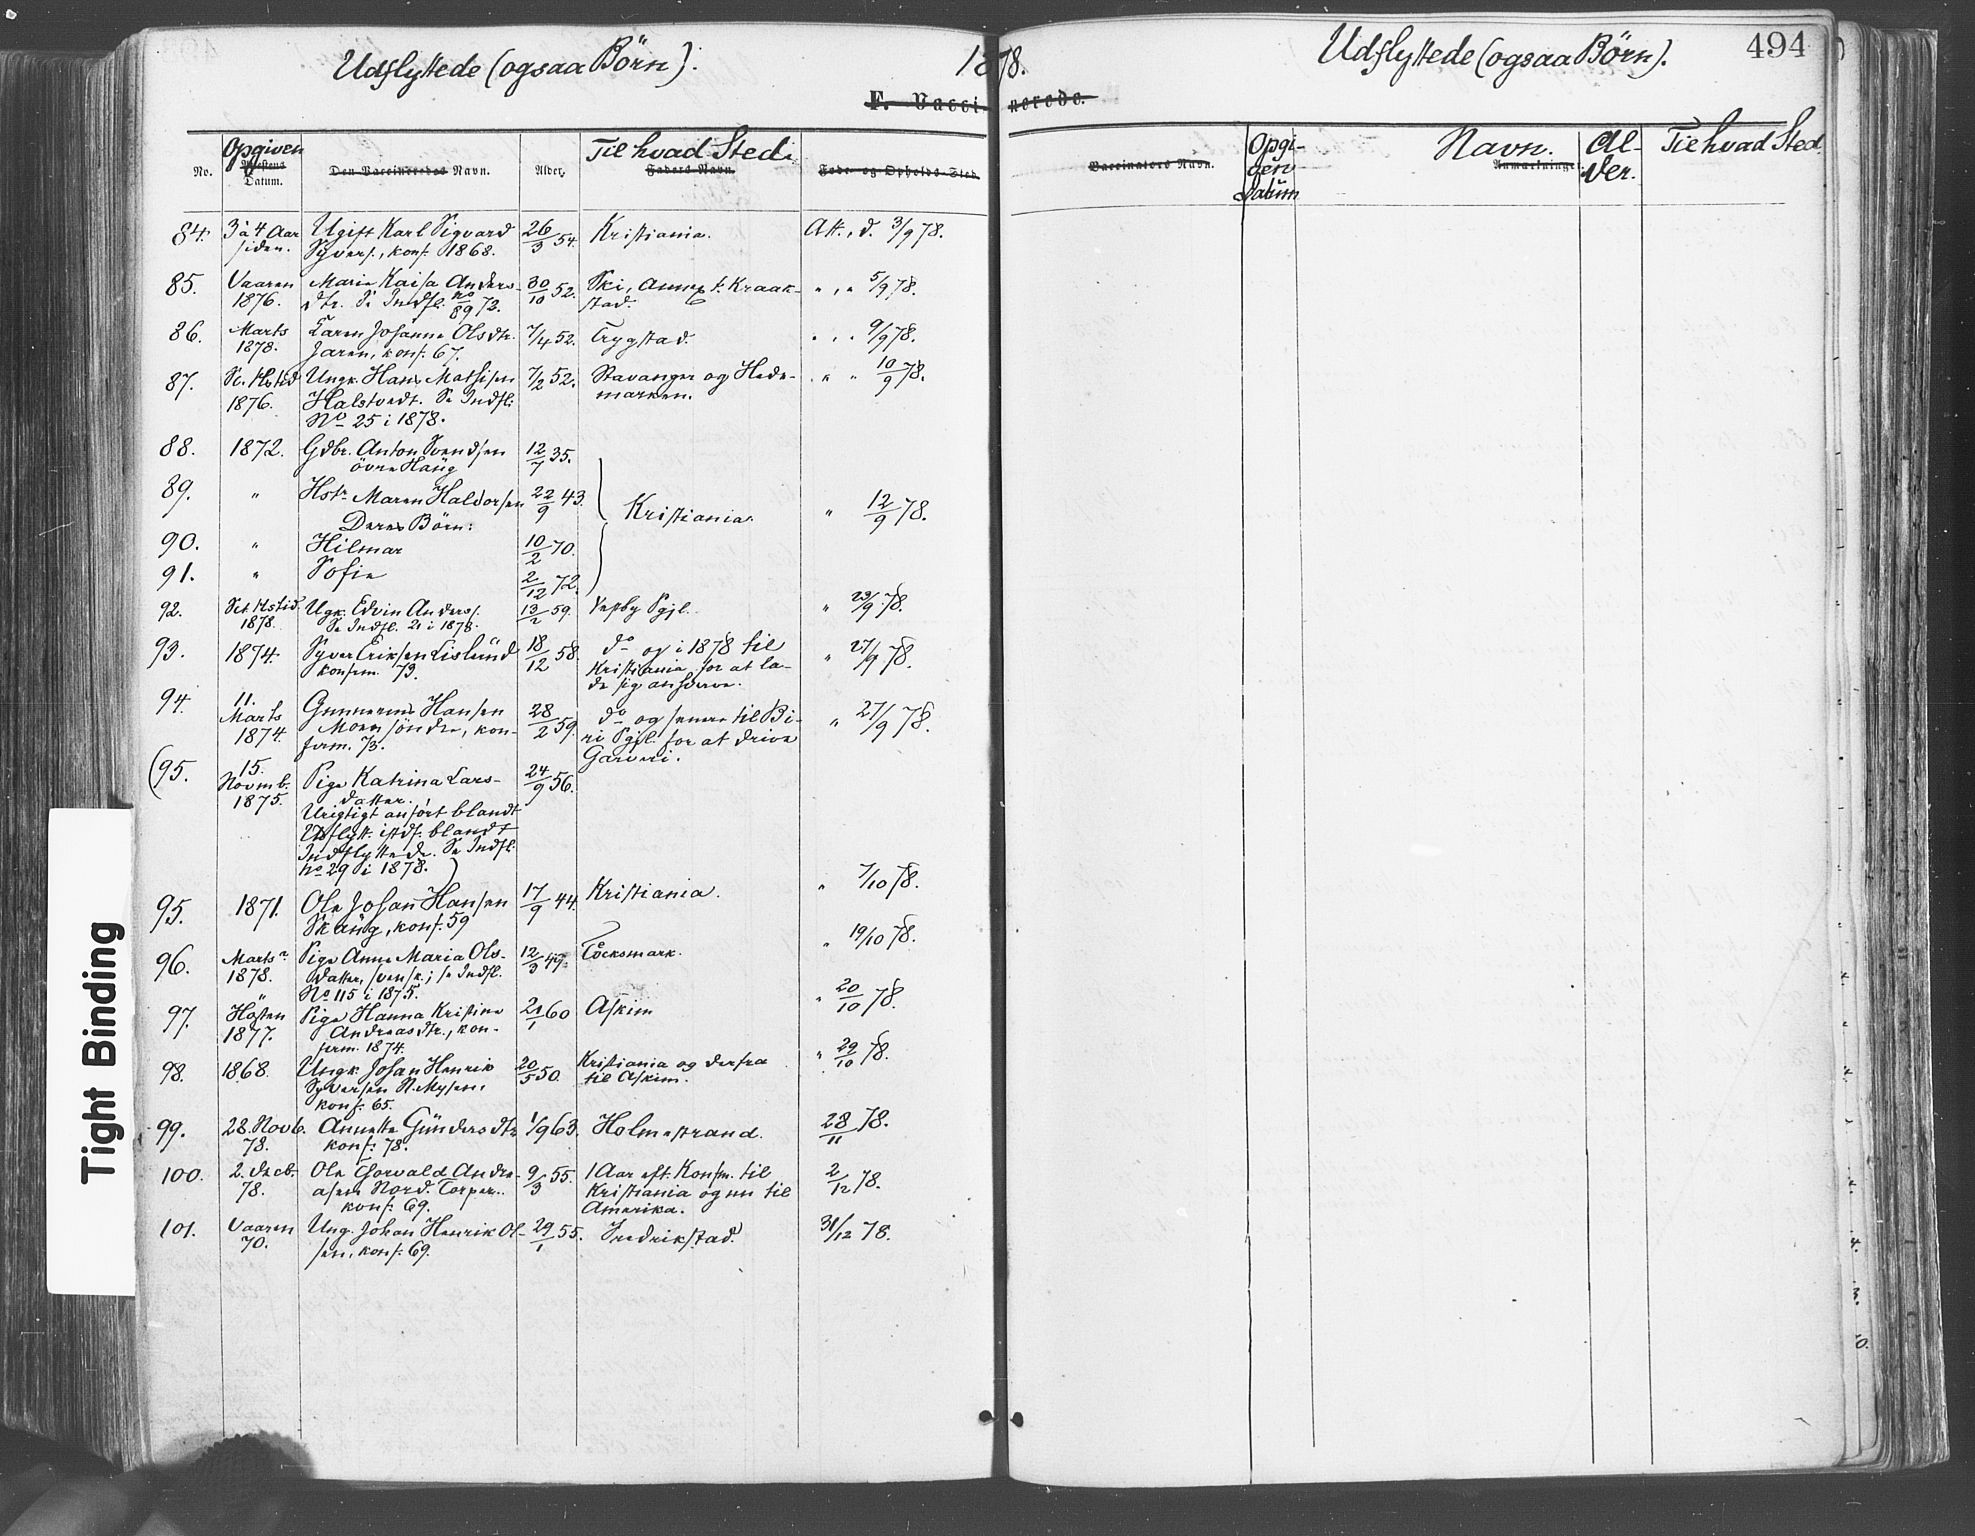 Udflyttede (ogsaa Börn).
1878.
Udflyttede (ogsaa Börn).
494
F. Vaccinerede.
No.
Opgiven
Attestens
Datum.
Den Vaccineredes Navn.
Alder.
Til hvad Sted.
Faders Navn.
Føde- og Opholds-Sted.
Vaccinators Navn.
Opgi-
ven
Datum
Navn.
Anmærkninger.
Al-
der.
Til hvad Sted.
84. 3 à 4 Aar Ugift Karl Sigvard 26/3 54. Kristiania. Att., d. 3/9 78.
siden. Syvers., konf. 1868.
85. Vaaren Maria Kaisa Anders- 30/10 52. Ski, Annex t. Kraak- " , " 5/9 78.
1876. dtr. Se Indfl. No 89 73. stad.
86. Marts Karen Johanne Olsdtr. 7/4 52. Trygstad. " " 9/9 78.
1878. Jaren, konf. 67.
87. Se. Høstid Ungk. Hans Mathisen 7/2 52. Stavanger og Hede- " " 10/9 78.
1876. Halstvedt. Se Indfl. marken.
No 25 i 1878.
88. 1872. Gdbr. Anton Svendsen 12/7 35.
övre Haug
89. " Hstr Maren Haldorsen 22/9 43. Kristiania. " 12/9 78.
Deres Börn:
90. " Hilmar 10/2 70.
91. " Sofie 2/12 72.
92. Set. Hstid. Ugk. Edvin Anders. 13/2 59. Vestby Pgjl. " 23/9 78.
1878. Se Indfl. 21 i 1878.
93. 1874. Syver Eriksen Lislund 18/12 58. do og i 1878 til " 27/9 78.
konfirm. 73. Kristiania for at la-
de sig anhverve.
94. 11. Gunnerius Hansen 28/2 59. do og senere til Bi- " 27/9 78.
Marts Moen söndre, kon- ri Pgjl. for at drive
1874. firm. 73. Garveri.
(95. 15. Pige Katrina Lars- 24/9 56.
Novmb. datter.
1875. Urigtigt anført blandt
Udflytt. istdf. blandt
Indflyttede. Se Indfl.
No 29 i 1878. )
95. 1871. Ole Johan Hansen 17/9 44. Kristiania. " 7/10 78.
Skaug, konf. 59
96. Marts Pige Anne Maria Ols- 12/3 49. Töcksmark. " 19/10 78.
1878. datter, svensk; se Indfl.
No 115 i 1875.
97. Hösten Pige Hanna Kristine 21/1 60 Askim " 20/10 78.
1877. Andreasdtr., kon-
firm. 1874.
98. 1868. Ungk. Johan Henrik 20/5 50. Kristiania og derfra " 29/10 78.
Syversen N. Mysen, til Askim.
konf. 65.
99. 28. Novb. Annette Gundersdtr 1/9 63. Holmestrand. 28/11 78.
78. konf. 78.
100. 2. Decb. Ole Thorvald Andre- 9/3 55. 1 Aar eft. Konfm. til 2/12 78.
78. asen Nord. Torper. Kristiania og nu til
konf. 69. Amerika.
101. Vaaren Ung. Johan Henrik Ol- 29/1 55. Fredrikstad. 31/12 78.
70. sen, konf. 69.
Tight Binding